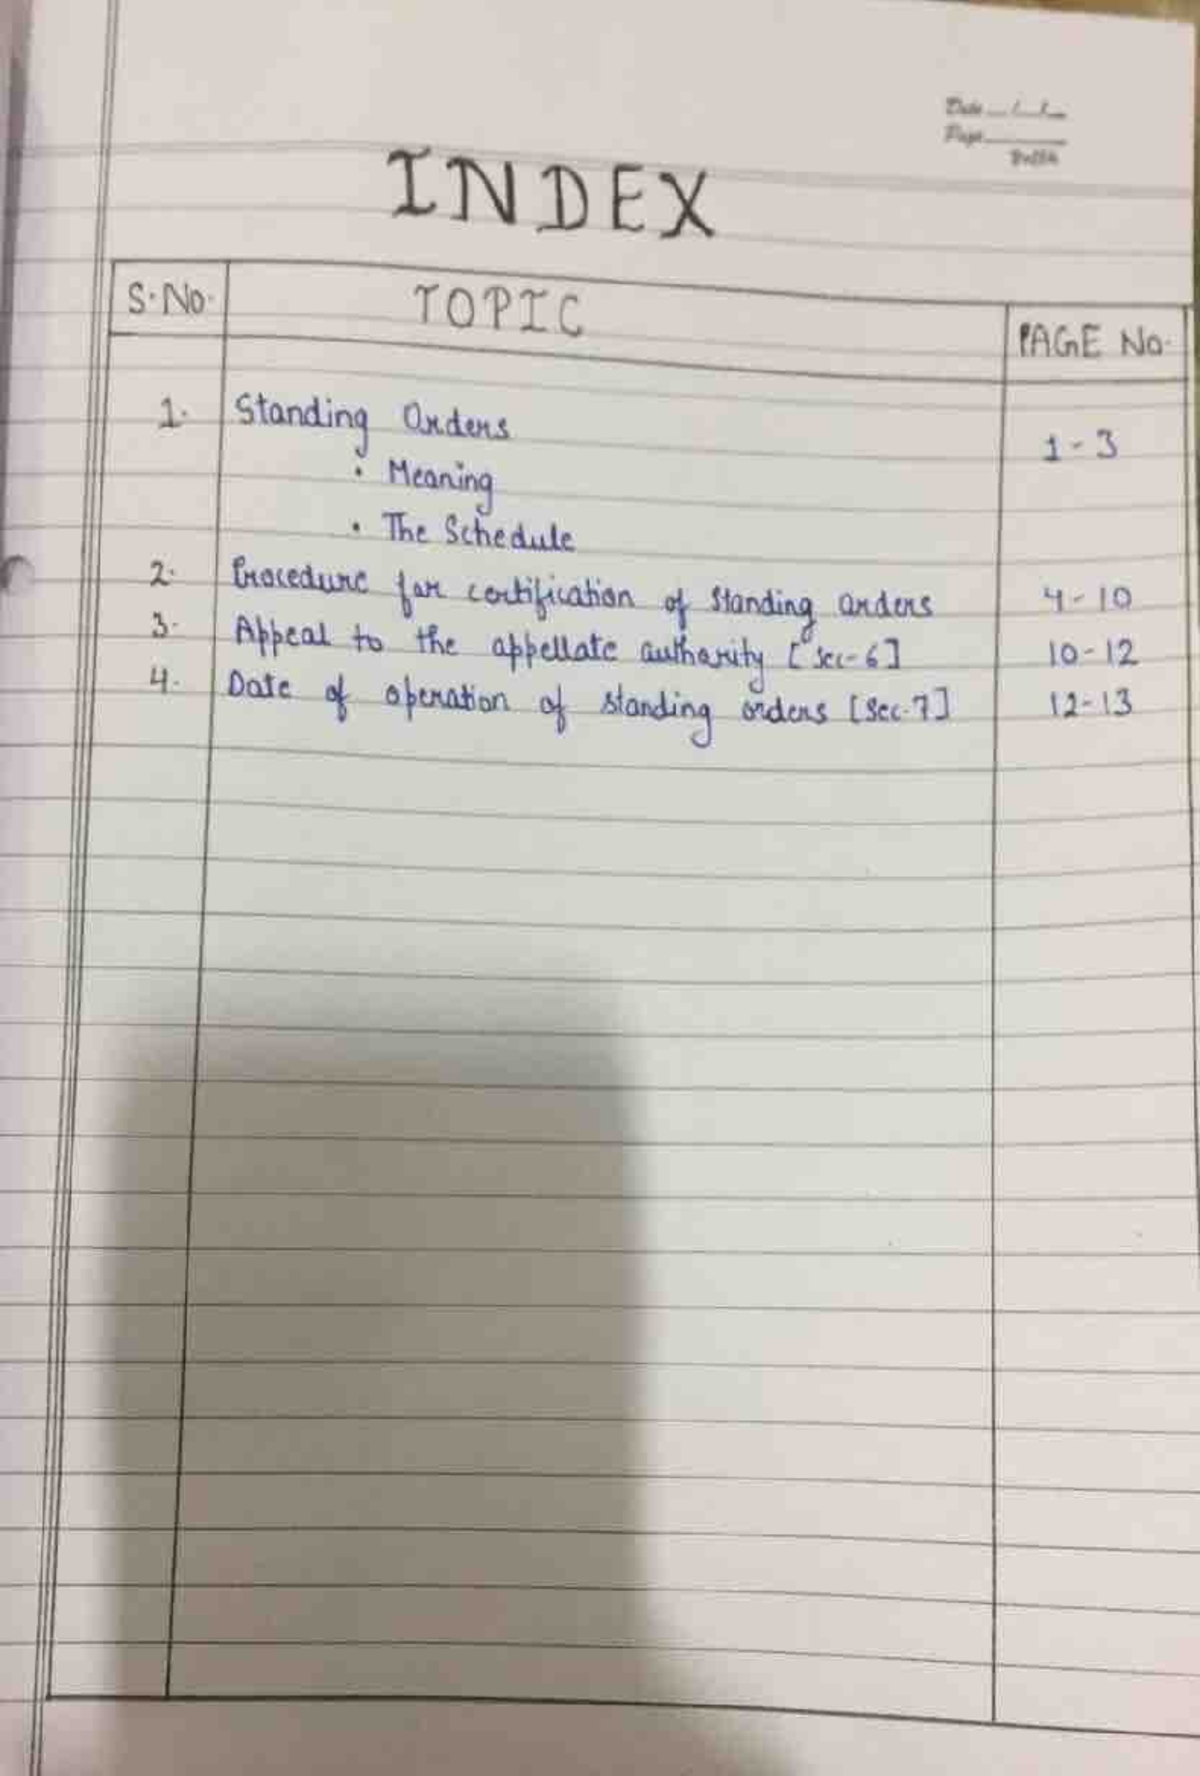 Date
Page
INDEX
S.No. TOPIC PAGE No.
1. Standing Orders 1-3
• Meaning
• The Schedule
2. Procedure for certification of standing orders 4-10
3. Appeal to the appellate authority [Sec-6] 10-12
4. Date of operation of standing orders [Sec-7] 12-13